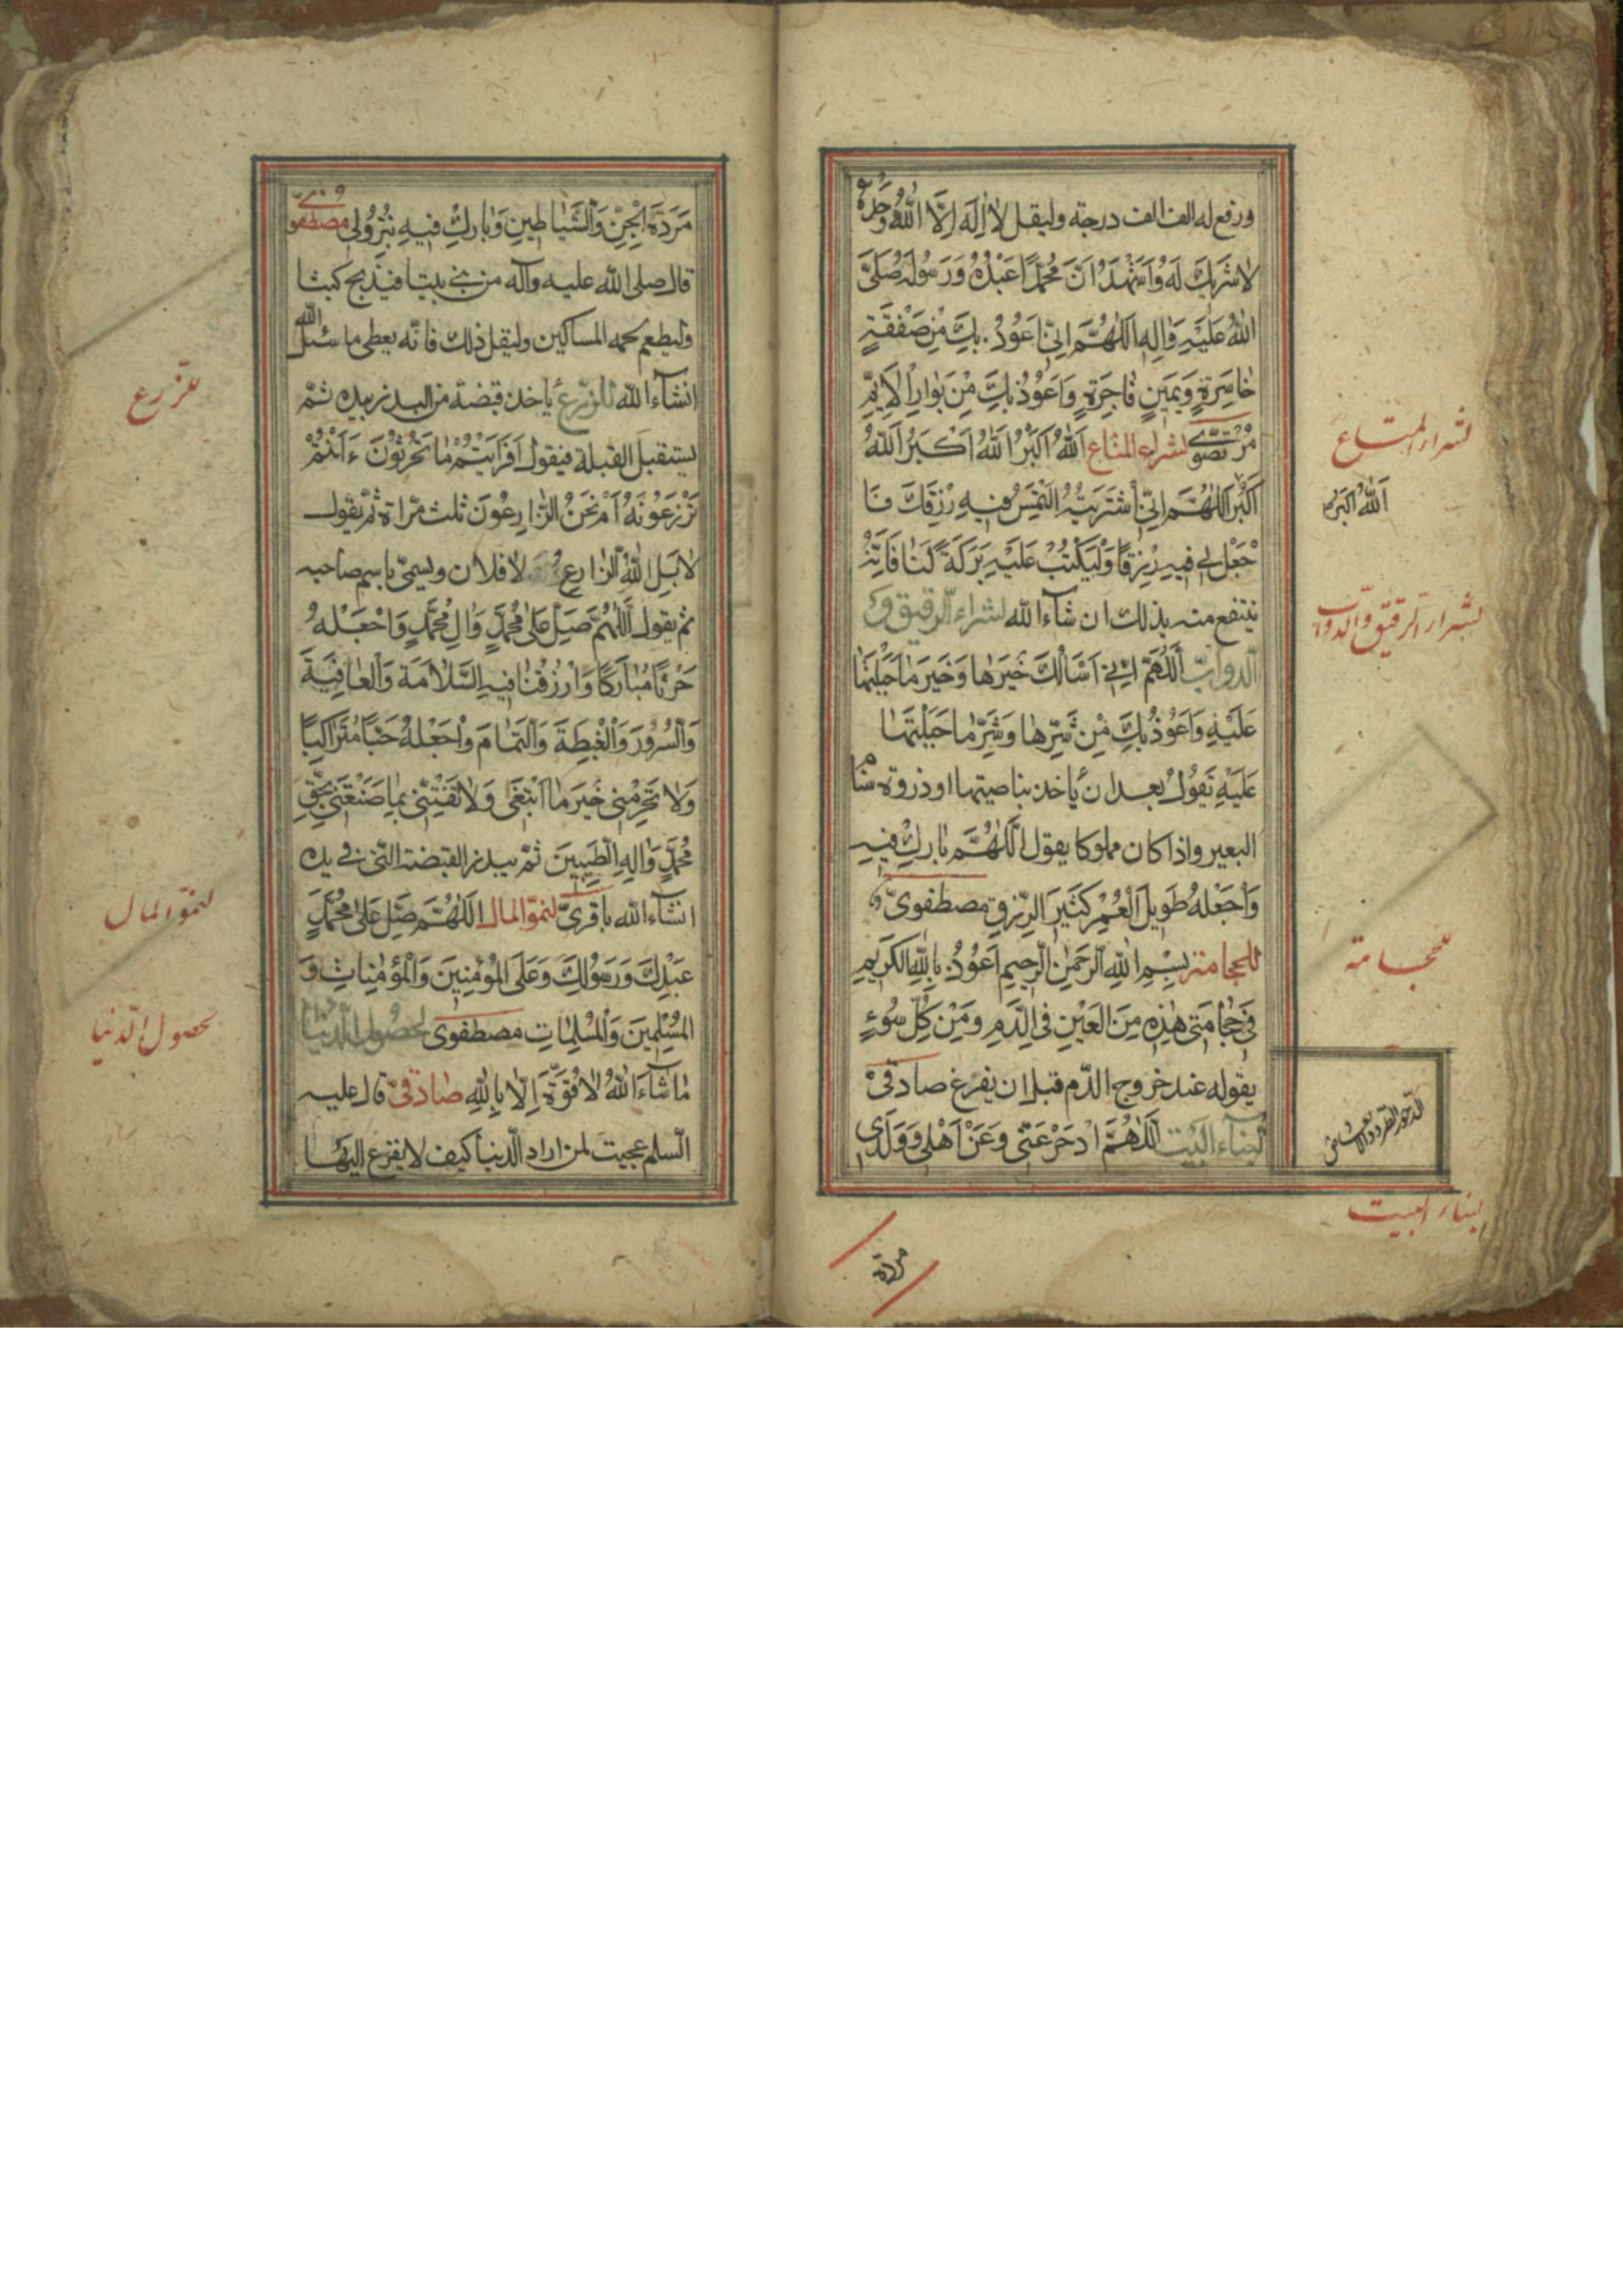 ورفع له الف الف درجة وليقل لَا اِلَهَ اِلَّا اللّٰهُ وَحْدَهُ
لَا شَرِيكَ لَهُ وَاَشْهَدُ اَنَّ مُحَمَّدًا عَبْدُهُ وَرَسُولُهُ صَلَّى
اللّٰهُ عَلَيْهِ وَاٰلِهِ اَللّٰهُمَّ اِنِّي اَعُوذُ بِكَ مِنْ صَفْقَةٍ
خَاسِرَةٍ وَيَمِينٍ فَاجِرَةٍ وَاَعُوذُ بِكَ مِنْ بَوَارِ الْاَيِّمِ
مُرْتَضَوِيّ لشراء المتاع اَللّٰهُ اَكْبَرُ اَللّٰهُ اَكْبَرُ اَللّٰهُ
اَكْبَرُ اَللّٰهُمَّ اِنِّي اشْتَرَيْتُهُ اَلْتَمِسُ فِيهِ رِزْقَكَ فَا
جْعَلْ لِي فِيهِ رِزْقًا وَلْيَكْتُبْ عَلَيْهِ بَرَكَةً لَنَا فَاِنَّهُ
ينتفع منه بذلك ان شآء الله لشراء الرقيق و
الدوابّ اَللّٰهُمَّ اِنِّي اَسْاَلُكَ خَيْرَهَا وَخَيْرَ مَا جَبَلْتَهَا
عَلَيْهِ وَاَعُوذُ بِكَ مِنْ شَرِّهَا وَشَرِّ مَا جَبَلْتَهَا
عَلَيْهِ تَقُولُ بعد ان يأخذ بناصيتها او ذروة سنام
البعير واذا كان مملوكا يقول اَللّٰهُمَّ بَارِكْ فِيهِ
وَاجْعَلْهُ طَوِيلَ الْعُمْرِ كَثِيرَ الرِّزْقِ مصطفويّ
للحجامة بِسْمِ اللّٰهِ الرَّحْمٰنِ الرَّحِيمِ اَعُوذُ بِاللّٰهِ الْكَرِيمِ
فِي حِجَامَتِي هٰذِهِ مِنَ الْعَيْنِ فِي الدَّمِ وَمِنْ كُلِّ سُوءٍ
يقوله عند خروج الدّم قبل ان يفرغ صادقيّ
لبنآء البيت اَللّٰهُمَّ ادْحَرْ عَنِّي وَعَنْ اَهْلِي وَوَلَدِي
مردة
لشراء المتاع
اَللّٰهُ اَكْبَرُ
لشراء الرقيق والدواب
للحجامة
لبناء البيت
مَرَدَةَ الْجِنِّ وَالشَّيَاطِينِ وَبَارِكْ فِيهِ بِنُزُولِي مصطفوي
قال صلى الله عليه وآله من بنى بيتا فيذبح كبشا
وليطعم لحمه المساكين وليقل ذلك فانّه يعطى ما سئل الله
انشآء الله للزرع يأخذ قبضة من البذر بيده ثمّ
يستقبل القبلة فيقول اَفَرَاَيْتُمْ مَا تَحْرُثُونَ ءَاَنْتُمْ
تَزْرَعُونَهُ اَمْ نَحْنُ الزَّارِعُونَ ثلث مرّاة ثم يقول
لَا بَلِ اللّٰهُ الزَّارِعُ لا فلان ويسمّى باسم صاحبه
ثم يقول اَللّٰهُمَّ صَلِّ عَلَى مُحَمَّدٍ وَاٰلِ مُحَمَّدٍ وَاجْعَلْهُ
حَرْثًا مُبَارَكًا وَارْزُقْنَا فِيهِ السَّلَامَةَ وَالْعَافِيَةَ
وَالسُّرُورَ وَالْغِبْطَةَ وَالتَّمَامَ وَاجْعَلْهُ حَبًّا مُتَرَاكِبًا
وَلَا تَحْرِمْنِي خَيْرَ مَا اَبْتَغِي وَلَا تَفْتِنِّي بِمَا مَتَّعْتَنِي بِحَقِّ
مُحَمَّدٍ وَاٰلِهِ الطَّيِّبِينَ ثمّ يبذر القبضة التي في يده
انشآء الله باقريّ لنموّ المال اَللّٰهُمَّ صَلِّ عَلَى مُحَمَّدٍ
عَبْدِكَ وَرَسُولِكَ وَعَلَى الْمُؤْمِنِينَ وَالْمُؤْمِنَاتِ وَ
الْمُسْلِمِينَ وَالْمُسْلِمَاتِ مصطفوى لحصول الدنيا
مَا شَآءَ اللّٰهُ لَا قُوَّةَ اِلَّا بِاللّٰهِ صادقيّ قال عليه
السلم عجبت لمن اراد الدنيا كيف لا يفزع اليها
للزرع
لنموّ المال
لحصول الدنيا